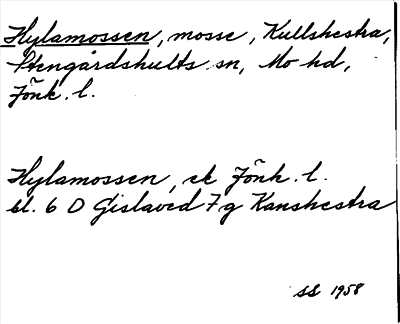 Hylamossen, mosse, Kullshestra,
Stengårdshults sn, Mo hd,
Jönk. l.
Hylamossen, ek Jönk. l.
bl. 6 D Gislaved 7 g Kanshestra
SS 1958